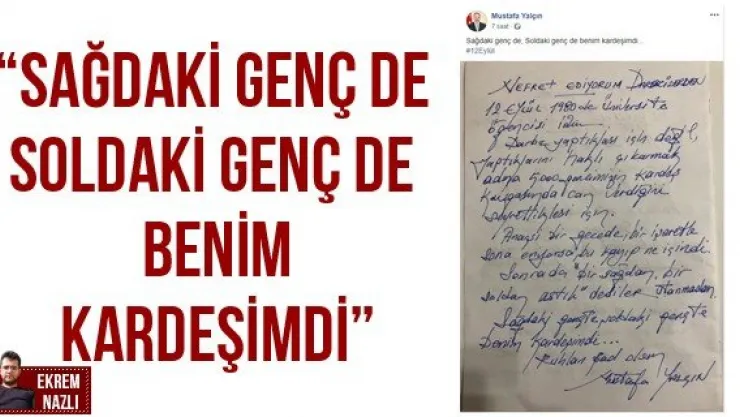 “SAĞDAKİ GENÇ DE
SOLDAKİ GENÇ DE
BENİM
KARDEŞİMDİ”
EKREM
NAZLI
Mustafa Yalçın
7 saat
Sağdaki genç de, Soldaki genç de benim kardeşimdi...
#12Eylül
NEFRET EDİYORUM Darbecilerden
12 Eylül 1980 de Üniversite
öğrencisi idim
Darbe yaptıkları için değil,
yaptıklarını haklı çıkarmak
adına 5000 gencimizin kardeş
kavgasında can verdiğini
seyrettikleri için.
Anarşi bir gecede, bir işaretle
sona eriyorsa, bu kayıp ne içindi.
Sonrada "bir sağdan, bir
soldan astık" dediler utanmadan.
Sağdaki gençte, soldaki gençte
benim kardeşimdi...
Ruhları şad olsun
Mustafa Yalçın